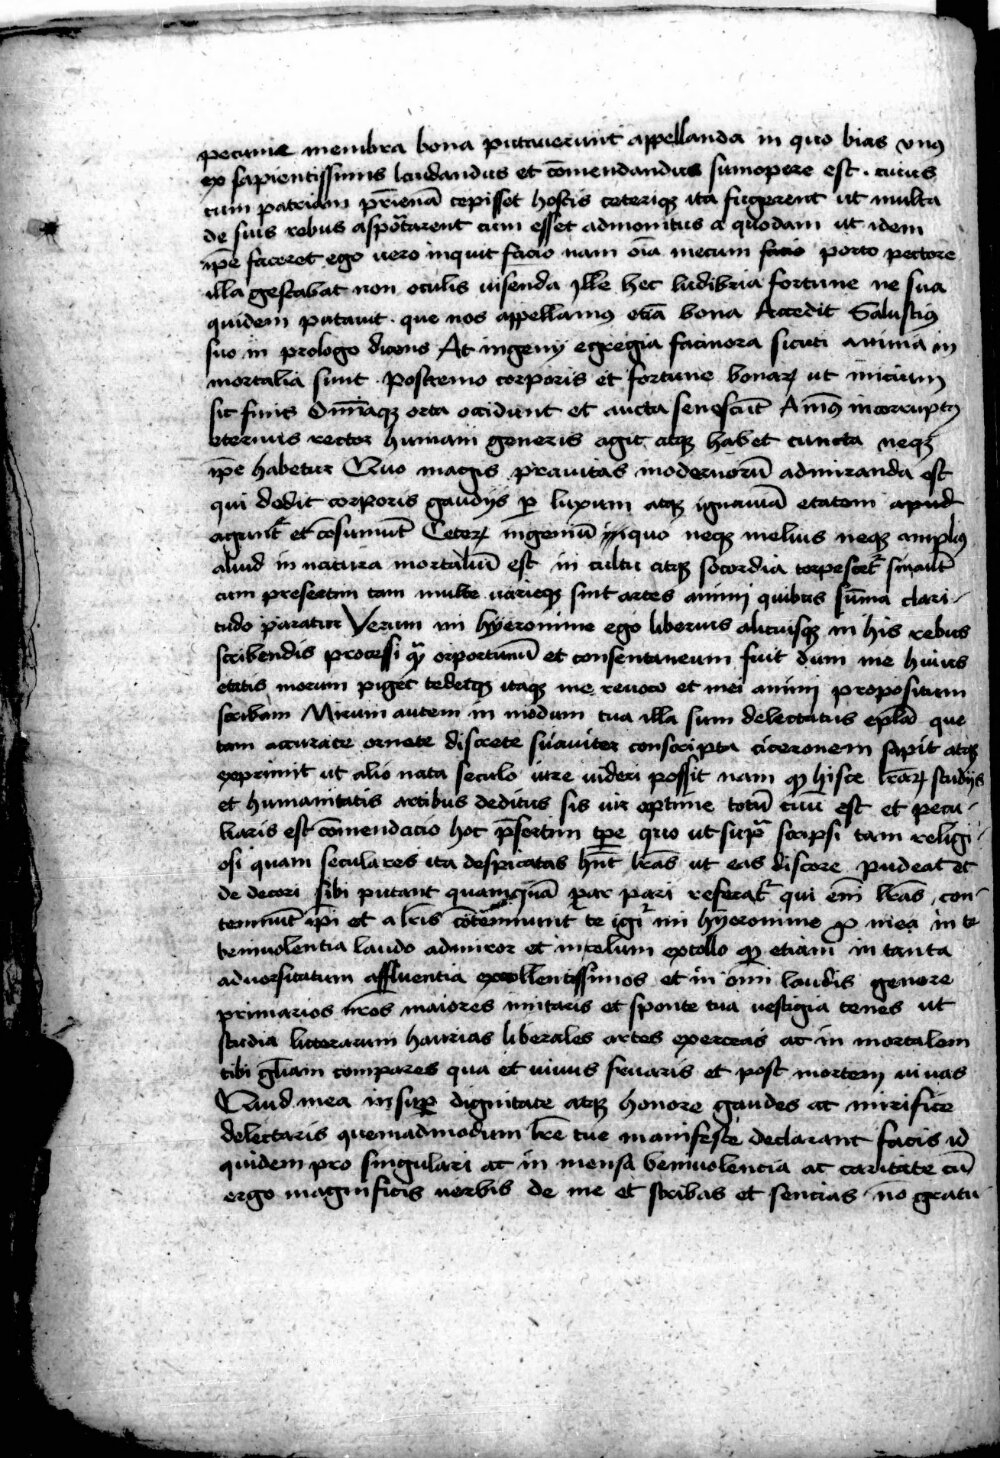 pecunie membra bona putauerunt appellanda in quo bias vnus
ex sapientissimis laudandus et co̅mendandus sumopere est . cuius
cum patriam prie̅na̅ cepisset hostis ceteriqꝫ ita fugerent ut multa
de suis rebus asporta̅rent cum esset admonitus a quodam ut idem
ip̅e faceret ego uero inquit facio nam oi̅a mecum facio porto pectore
illa gestabat non oculis uisenda Ille hec ludibria fortune ne sua
quidem putauit . que nos appellamꝰ etia̅ bona Accedit Salustiꝰ
suo in prologo dicens At ingenij egregia facinora sicuti anima in
mortalia sunt . Postremo corporis et fortune bonaꝝ ut inicium
sic finis Omniaqꝫ orta occidunt et aucta senescu̅t Animꝰ incorruptꝰ
eternus rector humani generis agit atqꝫ habet cuncta neqꝫ
ip̅e habetur Quo magis prauitas modernoru̅ admiranda est
qui dedit corporis gaudijs ꝑ luxum atqꝫ ignauia̅ etatem apud
agunt et co̅sumu̅t Ceteꝝ ingeniu̅ quo neqꝫ melius neqꝫ amplius
aliud in natura mortaliu̅ est in cultu atqꝫ socordia torpescer̅ sinu̅t
cum presertim tam multe uarieqꝫ sint artes animi quibus su̅ma clari-
tudo paratur Verum mi hyeronime ego liberius alciusqꝫ in his rebus
scribendis processi qꝫ̅ orportunu̅ et consentaneum fuit dum me huius
etatis morum piget tedetqꝫ itaqꝫ me reuoco et mei animi propositum
scribam Mirum autem in modum tua illa sum delectatus ep̅la que
tam accurate ornate discrete suauiter conscripta ciceronem sapit atqꝫ
exprimit ut alio nata seculo iure uideri possit nam ꝙ hisce l̅raꝝ studijs
et humanitatis artibus deditus sis uir optime totu̅ tuu̅ est et pecu-
liaris est co̅mendacio hoc p̅sertim tp̅e quo ut supra scripsi tam religi-
osi quam seculares ita despicatas hn̅t l̅ras ut eas discere pudeat et
de decori sibi putant quamqua̅ par pari referat̅ qui eni̅ l̅ras con-
temnu̅t ip̅i et a l̅ris co̅temnunt te igi̅ mi hyeronime ꝓ mea in te
beniuolentia laudo admiror et in celum extollo ꝙ etiam in tanta
aduersitatum affluentia excellentissimos et in o̅ni laudis genere
primarios n̅ros maiores imitaris et sponte tua uestigia tenes ut
studia litterarum haurias liberales artes exerceas ac in mortalem
tibi gl̅iam compares qua et uiuus fruaris et post mortem uiuas
Quid mea insuꝑ dignitate atqꝫ honore gaudes ac mirifice
delectaris quemadmodum l̅re tue manifeste declarant facis id
quidem pro singulari ac in mensa beniuolencia ac caritate cu̅
ergo magnificis uerbis de me et scribas et sencias no̅ gratu-